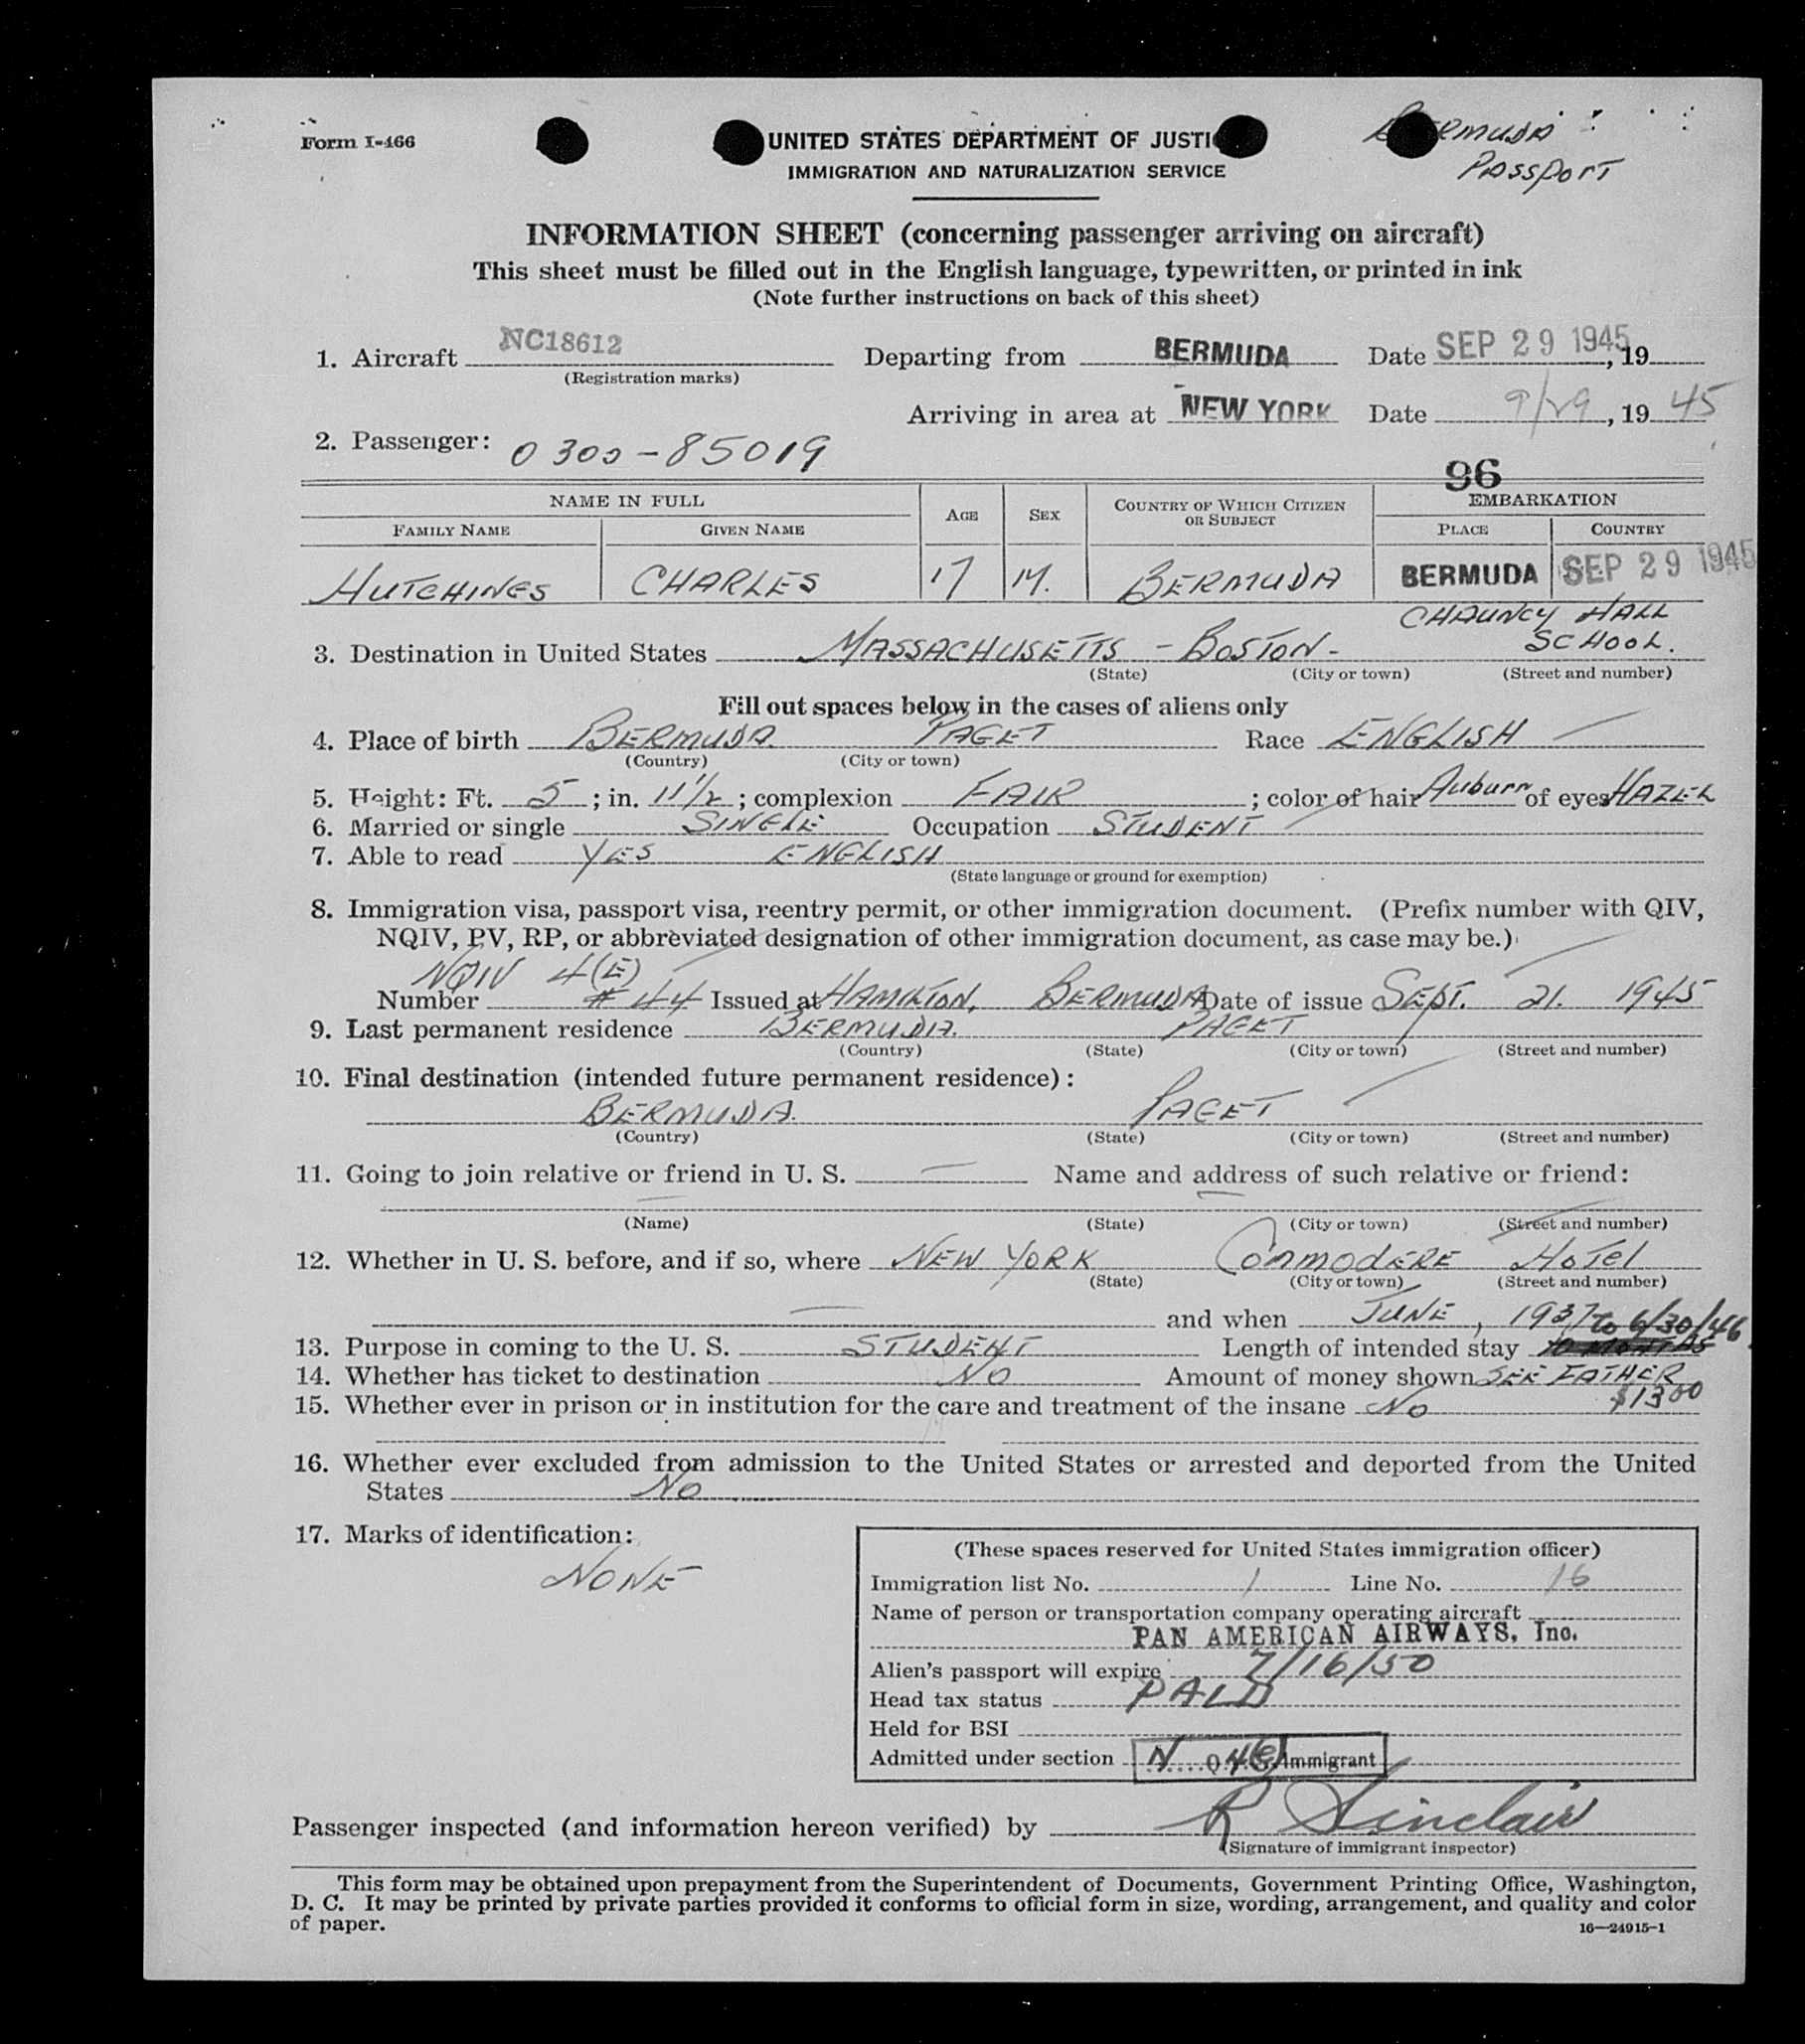 Form I-466
UNITED STATES DEPARTMENT OF JUSTI
IMMIGRATION AND NATURALIZATION SERVICE
BERMUDA
PASSPORT
INFORMATION SHEET (concerning passenger arriving on aircraft)
This sheet must be filled out in the English language, typewritten, or printed in ink
(Note further instructions on back of this sheet)
1. Aircraft NC18612 Departing from BERMUDA Date SEP 29 1945, 19
(Registration marks)
Arriving in area at NEW YORK Date 9/29, 19 45
2. Passenger: 0300-85019
96
NAME IN FULL AGE SEX COUNTRY OF WHICH CITIZEN OR SUBJECT EMBARKATION
FAMILY NAME GIVEN NAME PLACE COUNTRY
HUTCHINGS CHARLES 17 M. BERMUDA BERMUDA SEP 29 1945
CHAUNCY HALL
3. Destination in United States MASSACHUSETTS - BOSTON - SCHOOL.
(State) (City or town) (Street and number)
Fill out spaces below in the cases of aliens only
4. Place of birth BERMUDA. PAGET Race ENGLISH
(Country) (City or town)
5. Height: Ft. 5 ; in. 11 1/2 ; complexion FAIR ; color of hair Auburn of eyes HAZEL
6. Married or single SINGLE Occupation STUDENT
7. Able to read YES ENGLISH
(State language or ground for exemption)
8. Immigration visa, passport visa, reentry permit, or other immigration document. (Prefix number with QIV,
NQIV, PV, RP, or abbreviated designation of other immigration document, as case may be.)
NQIV 4(E)
Number # 44 Issued at HAMILTON, BERMUDA Date of issue SEPT. 21. 1945
9. Last permanent residence BERMUDA. PAGET
(Country) (State) (City or town) (Street and number)
10. Final destination (intended future permanent residence):
BERMUDA. PAGET
(Country) (State) (City or town) (Street and number)
11. Going to join relative or friend in U. S. — Name and address of such relative or friend:
(Name) (State) (City or town) (Street and number)
12. Whether in U. S. before, and if so, where NEW YORK COMMODERE HOTEL
(State) (City or town) (Street and number)
and when JUNE, 1937
to 6/30/46
13. Purpose in coming to the U. S. STUDENT Length of intended stay
14. Whether has ticket to destination NO Amount of money shown SEE FATHER
15. Whether ever in prison or in institution for the care and treatment of the insane NO $1300
16. Whether ever excluded from admission to the United States or arrested and deported from the United
States NO
17. Marks of identification:
NONE
(These spaces reserved for United States immigration officer)
Immigration list No. 1 Line No. 16
Name of person or transportation company operating aircraft
PAN AMERICAN AIRWAYS, Inc.
Alien's passport will expire 7/16/50
Head tax status PAID
Held for BSI
Admitted under section N 4(e) Immigrant
Passenger inspected (and information hereon verified) by R Sinclair
(Signature of immigrant inspector)
This form may be obtained upon prepayment from the Superintendent of Documents, Government Printing Office, Washington,
D. C. It may be printed by private parties provided it conforms to official form in size, wording, arrangement, and quality and color
of paper.
16—24915-1